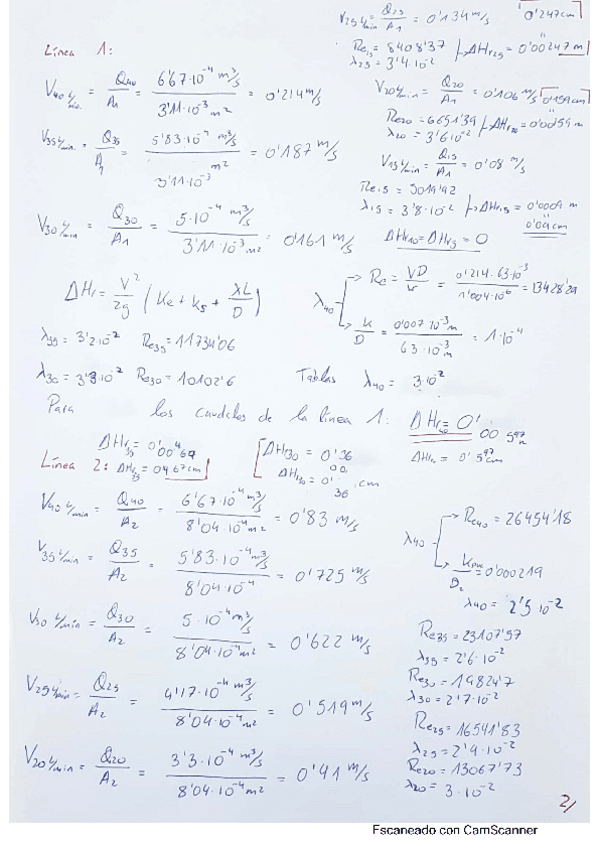 V25 L/min = Q25/A1 = 0'134 m/s 0'247cm
Línea 1:
Re25 = 8408'37
λ25 = 3'4·10⁻² } ΔHr25 = 0'00247 m
V40 L/min = Q40/A1 = 6'67·10⁻⁴ m³/s / 3'11·10⁻³ m² = 0'214 m/s
V20 L/min = Q20/A1 = 0'106 m/s 0'159cm
Re20 = 6651'39
λ20 = 3'6·10⁻² } ΔHr20 = 0'00159 m
V35 L/min = Q35/A1 = 5'83·10⁻⁴ m³/s / 3'11·10⁻³ m² = 0'187 m/s
V15 L/min = Q15/A1 = 0'08 m/s
Re15 = 5019'92
λ15 = 3'8·10⁻² } ΔHr15 = 0'0009 m
0'09cm
V30 L/min = Q30/A1 = 5·10⁻⁴ m³/s / 3'11·10⁻³ m² = 0'161 m/s
ΔHr10 = ΔHr5 = 0
ΔHr = V²/2g (Ke + Ks + λL/D)
λ40
Re = VD/ν = 0'214·63·10⁻³ / 1'004·10⁻⁶ = 13428'29
K/D = 0'007·10⁻³ m / 63·10⁻³ m = 1·10⁻⁴
λ35 = 3'2·10⁻² Re35 = 11734'06
λ30 = 3'3·10⁻² Re30 = 10102'6 Tablas λ40 = 3·10⁻²
Para los caudales de la línea 1: ΔHr40 = 0'00597 m
ΔHr35 = 0'00467 ΔHr30 = 0'0036 ΔHr40 = 0'597 cm
Línea 2: ΔHr35 = 0'467cm ΔHr30 = 0'36 cm
V40 L/min = Q40/A2 = 6'67·10⁻⁴ m³/s / 8'04·10⁻⁴ m² = 0'83 m/s
λ40
Re40 = 26454'18
K/D2 = 0'000219
λ40 = 2'5·10⁻²
V35 L/min = Q35/A2 = 5'83·10⁻⁴ m³/s / 8'04·10⁻⁴ = 0'725 m/s
V30 L/min = Q30/A2 = 5·10⁻⁴ m³/s / 8'04·10⁻⁴ m² = 0'622 m/s
Re35 = 23107'57
λ35 = 2'6·10⁻²
Re30 = 19824'7
λ30 = 2'7·10⁻²
V25 L/min = Q25/A2 = 4'17·10⁻⁴ m³/s / 8'04·10⁻⁴ m² = 0'519 m/s
Re25 = 16541'83
λ25 = 2'4·10⁻²
V20 L/min = Q20/A2 = 3'3·10⁻⁴ m³/s / 8'04·10⁻⁴ m² = 0'41 m/s
Re20 = 13067'73
λ20 = 3·10⁻²
2/
Escaneado con CamScanner